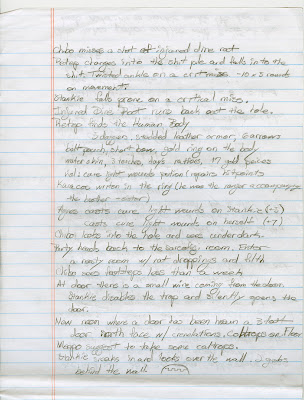 Chbo misses a shot at injured dire rat
Potney charges into the shit pile and falls into the
shit. Twisted ankle on a crit miss. -10 x 5 rounds
on movement.
Stankie falls prone on a critical miss.
Injured Dire Rat runs back out the hole.
finds the Human Body
2 daggers, studded leather armor, 16 arrows
belt pouch, short bow, gold ring on the body
water skin, 3 torches, days rations, 17 gold pieces
vial: cure light wounds potion 1 repairs 15 points
written in the ring (he was the ranger accompanying
the brother + sister)
casts cure light wounds on Stankie (+8)
casts cure light wounds on herself (+7)
Chbo looks into the hole and sees underdark.
Party heads back to the room. Enter
a nasty room w/ rat droppings and filth
Chbo sees footsteps less than a week
At door there is a small wire coming from the door.
Stankie disables the trap and silently opens the
door.
New room where a door has been hewn a 3 foot
door. North face w/ crenulations, caltrops on Floor
suggest to take some caltrops.
Stankie sneaks in and looks over the wall. 2 gobs
behind the wall